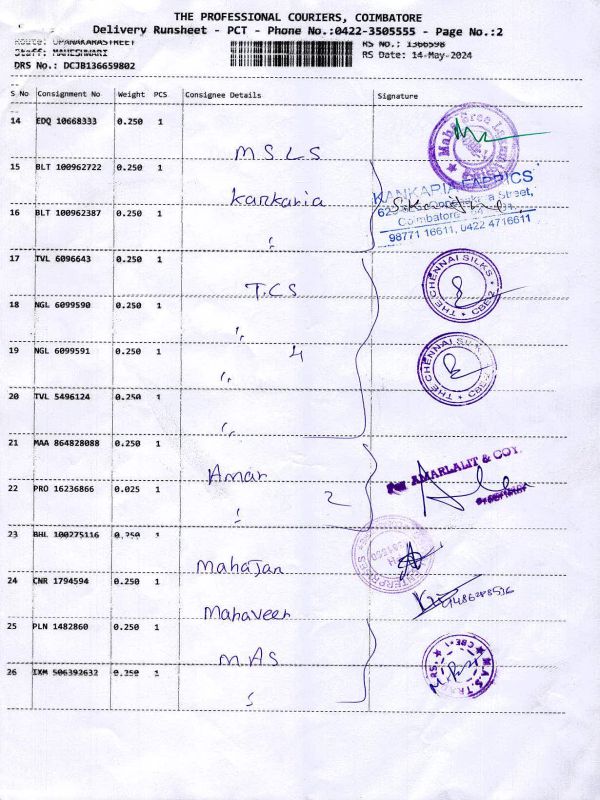 THE PROFESSIONAL COURIERS, COIMBATORE
Delivery Runsheet - PCT - Phone No.:0422-3505555 - Page No.:2
Route: UPANAKARASTREET RS No.: 1366598
Staff: MAHESHWARI RS Date: 14-May-2024
DRS No.: DCJB136659802
S No Consignment No Weight PCS Consignee Details Signature
14 EDQ 10668333 0.250 1 M S L S
15 BLT 100962722 0.250 1 Kankaria
KANKARIA FABRICS
Street,
Coimbatore
98771 16611, 0422 4716611
16 BLT 100962387 0.250 1 "
17 TVL 6096643 0.250 1 T.C.S
THE CHENNAI SILKS
CBE-2
18 NGL 6099590 0.250 1 "
19 NGL 6099591 0.250 1 " 4
THE CHENNAI SILKS
CBE-2
20 TVL 5496124 0.250 1 "
21 MAA 864828088 0.250 1 Amar
For AMARLALIT & COY.
22 PRO 16236866 0.025 1 " 2
23 BHL 100275116 0.250 1 Mahajan
ENTERPRISES
24 CNR 1794594 0.250 1 Mahaveer
25 PLN 1482860 0.250 1 M.A.S
M.A.S.
CBE-1
26 IXM 506392632 0.250 1 "